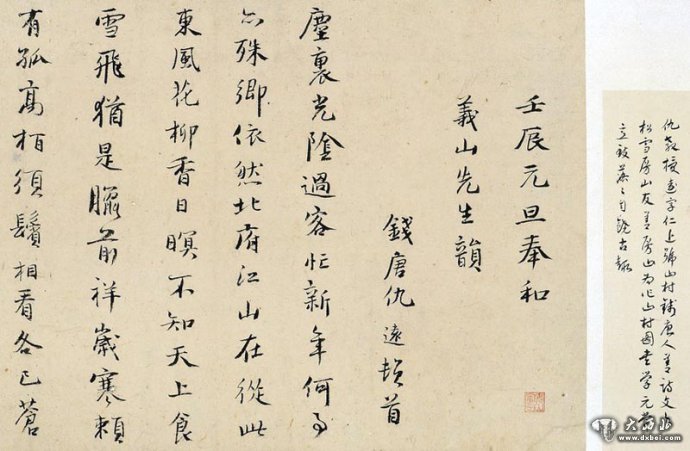 仇教授遠字仁近號山村錢唐人善詩文与
松雪房山友善房山为作山村圖書學元常
立致蕭々自饒古趣
壬辰元旦奉和
義山先生韻
錢唐仇遠頓首
塵裏光陰過客忙新年何事
殊鄉依然北府江山在從此
東風花柳香日暝不知天上食
雪飛猶是臘前祥歲寒賴
有孤高柏須鬢相看各已蒼
大西北
www.dxbei.com